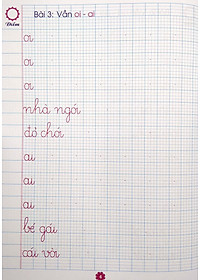 Điểm
Bài 3: Vần oi - ai
oi
oi
oi
nhà ngói
đồ chơi
ai
ai
ai
bé gái
cái vòi